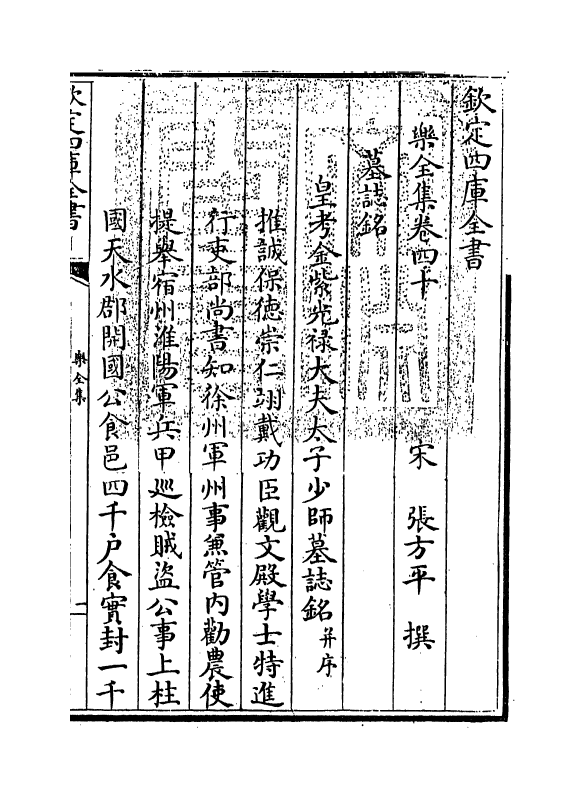 欽定四庫全書
樂全集卷四十
宋 張方平 撰
墓誌銘
皇考金紫光禄大夫太子少師墓誌銘并序
推誠保德崇仁翊戴功臣觀文殿學士特進
行吏部尚書知徐州軍州事兼管内勸農使
提舉宿州淮陽軍兵甲巡檢賊盜公事上柱
國天水郡開國公食邑四千户食實封一千
欽定四庫全書
樂全集